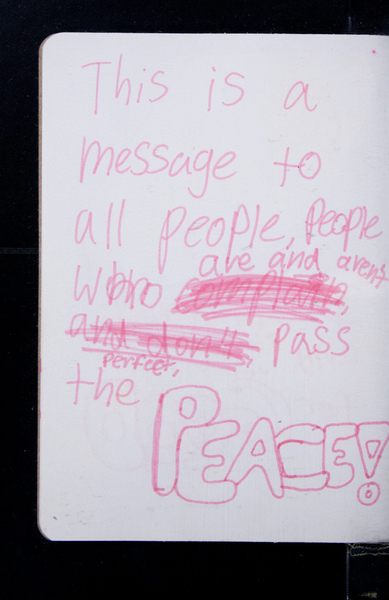 This is a
message to
all people, People
are and aren't
who complain,
and don't, pass
perfect,
the
PEACE!